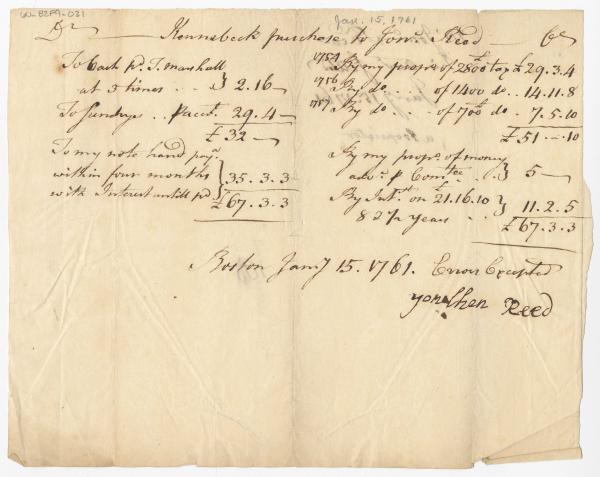 W-B2F9-031
Jan. 15, 1761
Dr Kennebeck purchase to Jona. Reed Cr
To Cash pd. J. Marshall
at 5 times . . } 2.16 —
To Sundrys . . P acct. 29.4 —
£32 —
To my note hand paya.
within four months } 35.3.3
with Interest untill pd
£67.3.3
1754 By my propn. of 2800 £ tax £29.3.4
1756 By do. . . of 1400 do . 14.11.8
1757 By do . . of 700 £ do . 7.5.10
£51.-.10
By my propn. of money
advd. P Comtee . . } 5 —
By Intst. on £21.16.10
8 2/12 years . . } 11.2.5
£67.3.3
Boston Jany 15. 1761. Errors Excepted
yonathen Reed